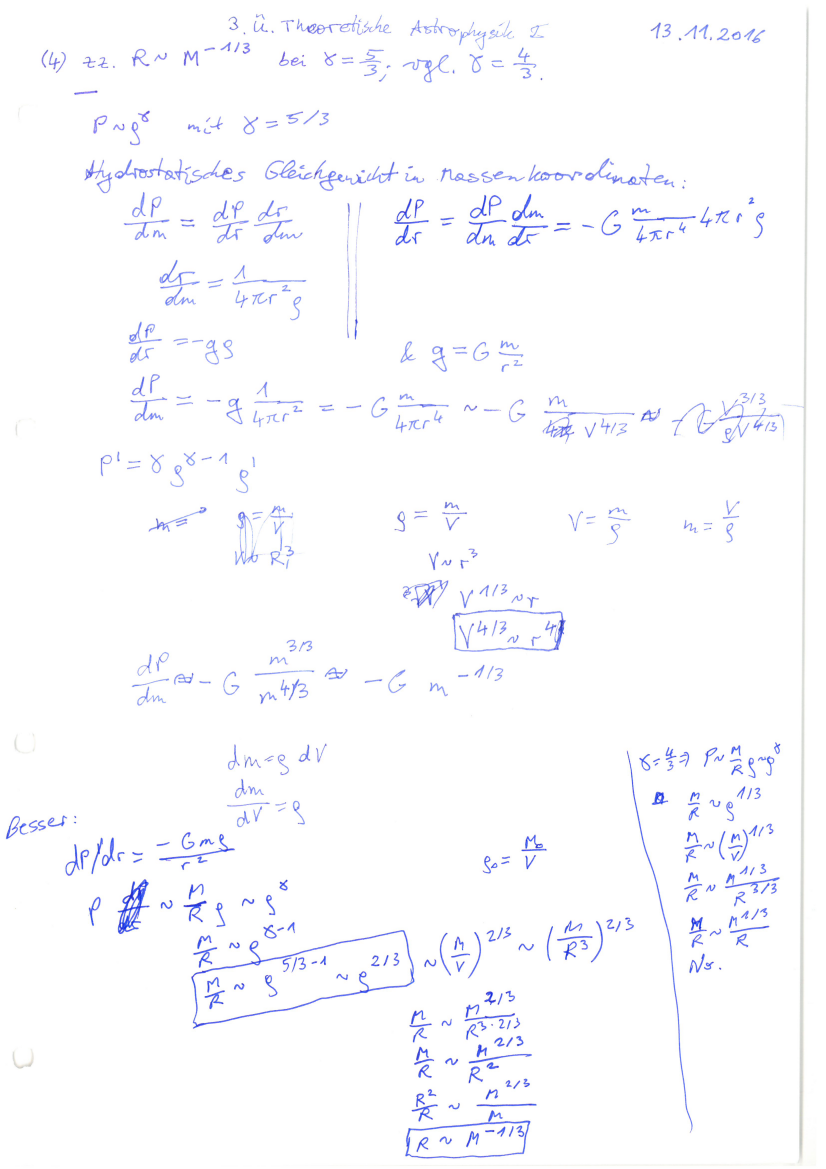 3. Ü. Theoretische Astrophysik I 13.11.2016
(4) zz. R ~ M^{-1/3} bei γ = 5/3; vgl. γ = 4/3.
P ~ ρ^γ mit γ = 5/3
Hydrostatisches Gleichgewicht in Massenkoordinaten:
dP/dm = dP/dr dr/dm || dP/dr = dP/dm dm/dr = - G m/4πr^4 4πr^2ρ
dr/dm = 1/4πr^2ρ
dP/dr = -gρ & g = G m/r^2
dP/dm = -g 1/4πr^2 = - G m/4πr^4 ~ - G m/V^{4/3}
P' = γ ρ^{γ-1} ρ'
m = ρ = m/V ρ = m/V V = m/ρ m = V/ρ
V ~ R^3 V ~ r^3
V^{1/3} ~ r
V^{4/3} ~ r^4
dP/dm ~ - G m^{3/3}/m^{4/3} ~ - G m^{-1/3}
dm = ρ dV
dm/dV = ρ
Besser:
dP/dr = -Gmρ/r^2 ρ_0 = M_0/V
P ~ M/R ρ ~ ρ^γ
M/R ~ ρ^{γ-1}
M/R ~ ρ^{5/3-1} ~ ρ^{2/3} ~ (M/V)^{2/3} ~ (M/R^3)^{2/3}
M/R ~ M^{2/3}/R^{3·2/3}
M/R ~ M^{2/3}/R^2
R^2/R ~ M^{2/3}/M
R ~ M^{-1/3}
γ = 4/3 ⇒ P ~ M/R ρ ~ ρ^γ
M/R ~ ρ^{1/3}
M/R ~ (M/V)^{1/3}
M/R ~ M^{1/3}/R^{3/3}
M/R ~ M^{1/3}/R